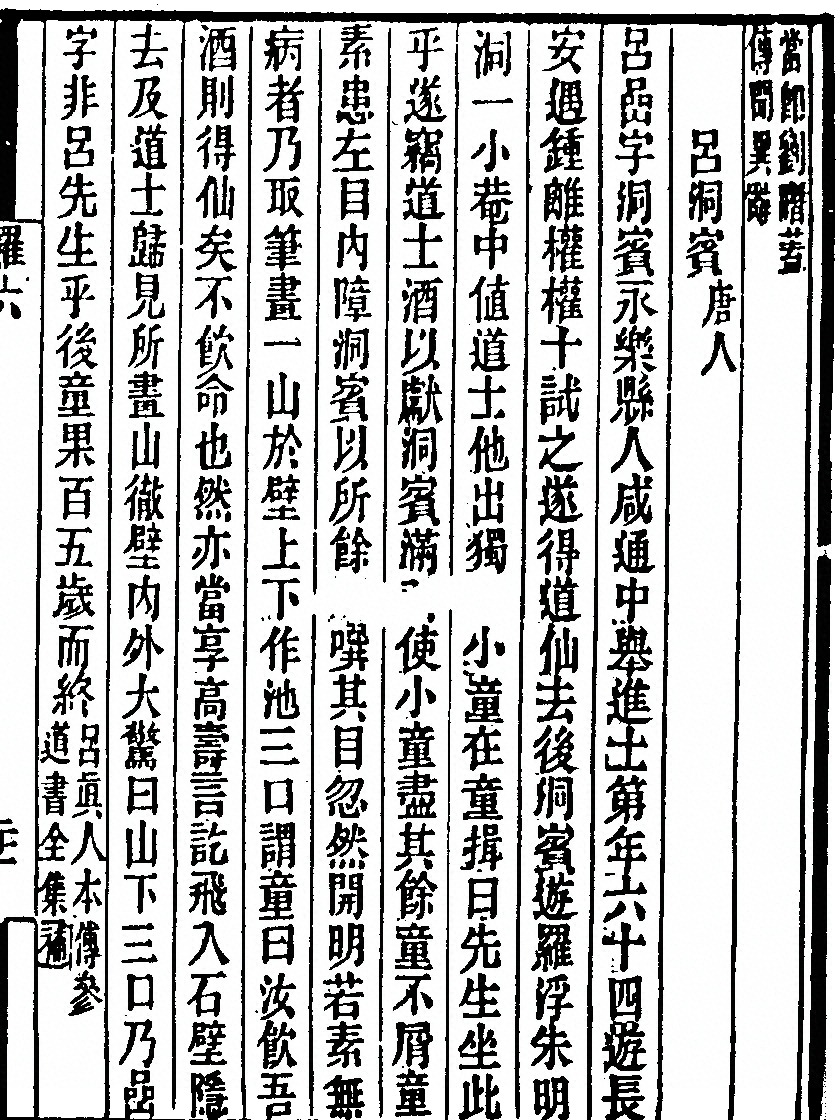 當郎劉𦒿若
傳聞異辭
呂洞賓唐人
呂嵒字洞賓永樂縣人咸通中舉進士第年六十四遊長
安遇鍾離權權十試之遂得道仙去後洞賓遊羅浮朱明
洞一小菴中値道士他出獨小童在童揖曰先生坐此
乎遂竊道士酒以獻洞賓滿使小童盡其餘童不屑童
素患左目內障洞賓以所餘噀其目忽然開明若素無
病者乃取筆畫一山於壁上下作池三口謂童曰汝飮吾
酒則得仙矣不飮命也然亦當享高壽言訖飛入石壁隱
去及道士歸見所畫山徹壁內外大驚曰山下三口乃嵒
字非呂先生乎後童果百五歲而終
呂眞人本傳參
道書全集補
羅
六